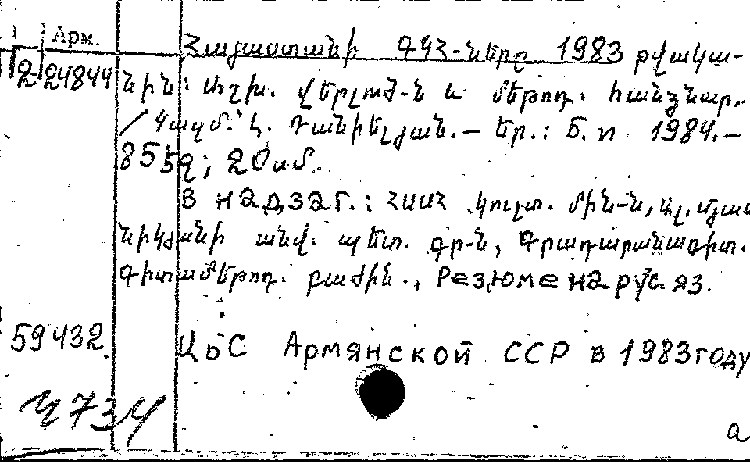 Арм.
Հայաստանի ԳԿՀ-ները 1983 թվակա-
2 24844 նին: Աշխ. վերլուծ-ն և մեթոդ. հանձնար.
/ Կազմ.՝ Լ. Դանիելյան. – Եր.: Б. и. 1984. –
85 էջ; 20 սմ.
В надзаг.: ՀՍՍՀ կուլտ. մին-ն, Ալ. Մյաս
նիկյանի անվ. պետ. գր-ն, Գրադարանագիտ.
գիտամեթոդ. բաժին., Резюме на рус. яз.
59432. ЦБС Армянской ССР в 1983 году
4734
а